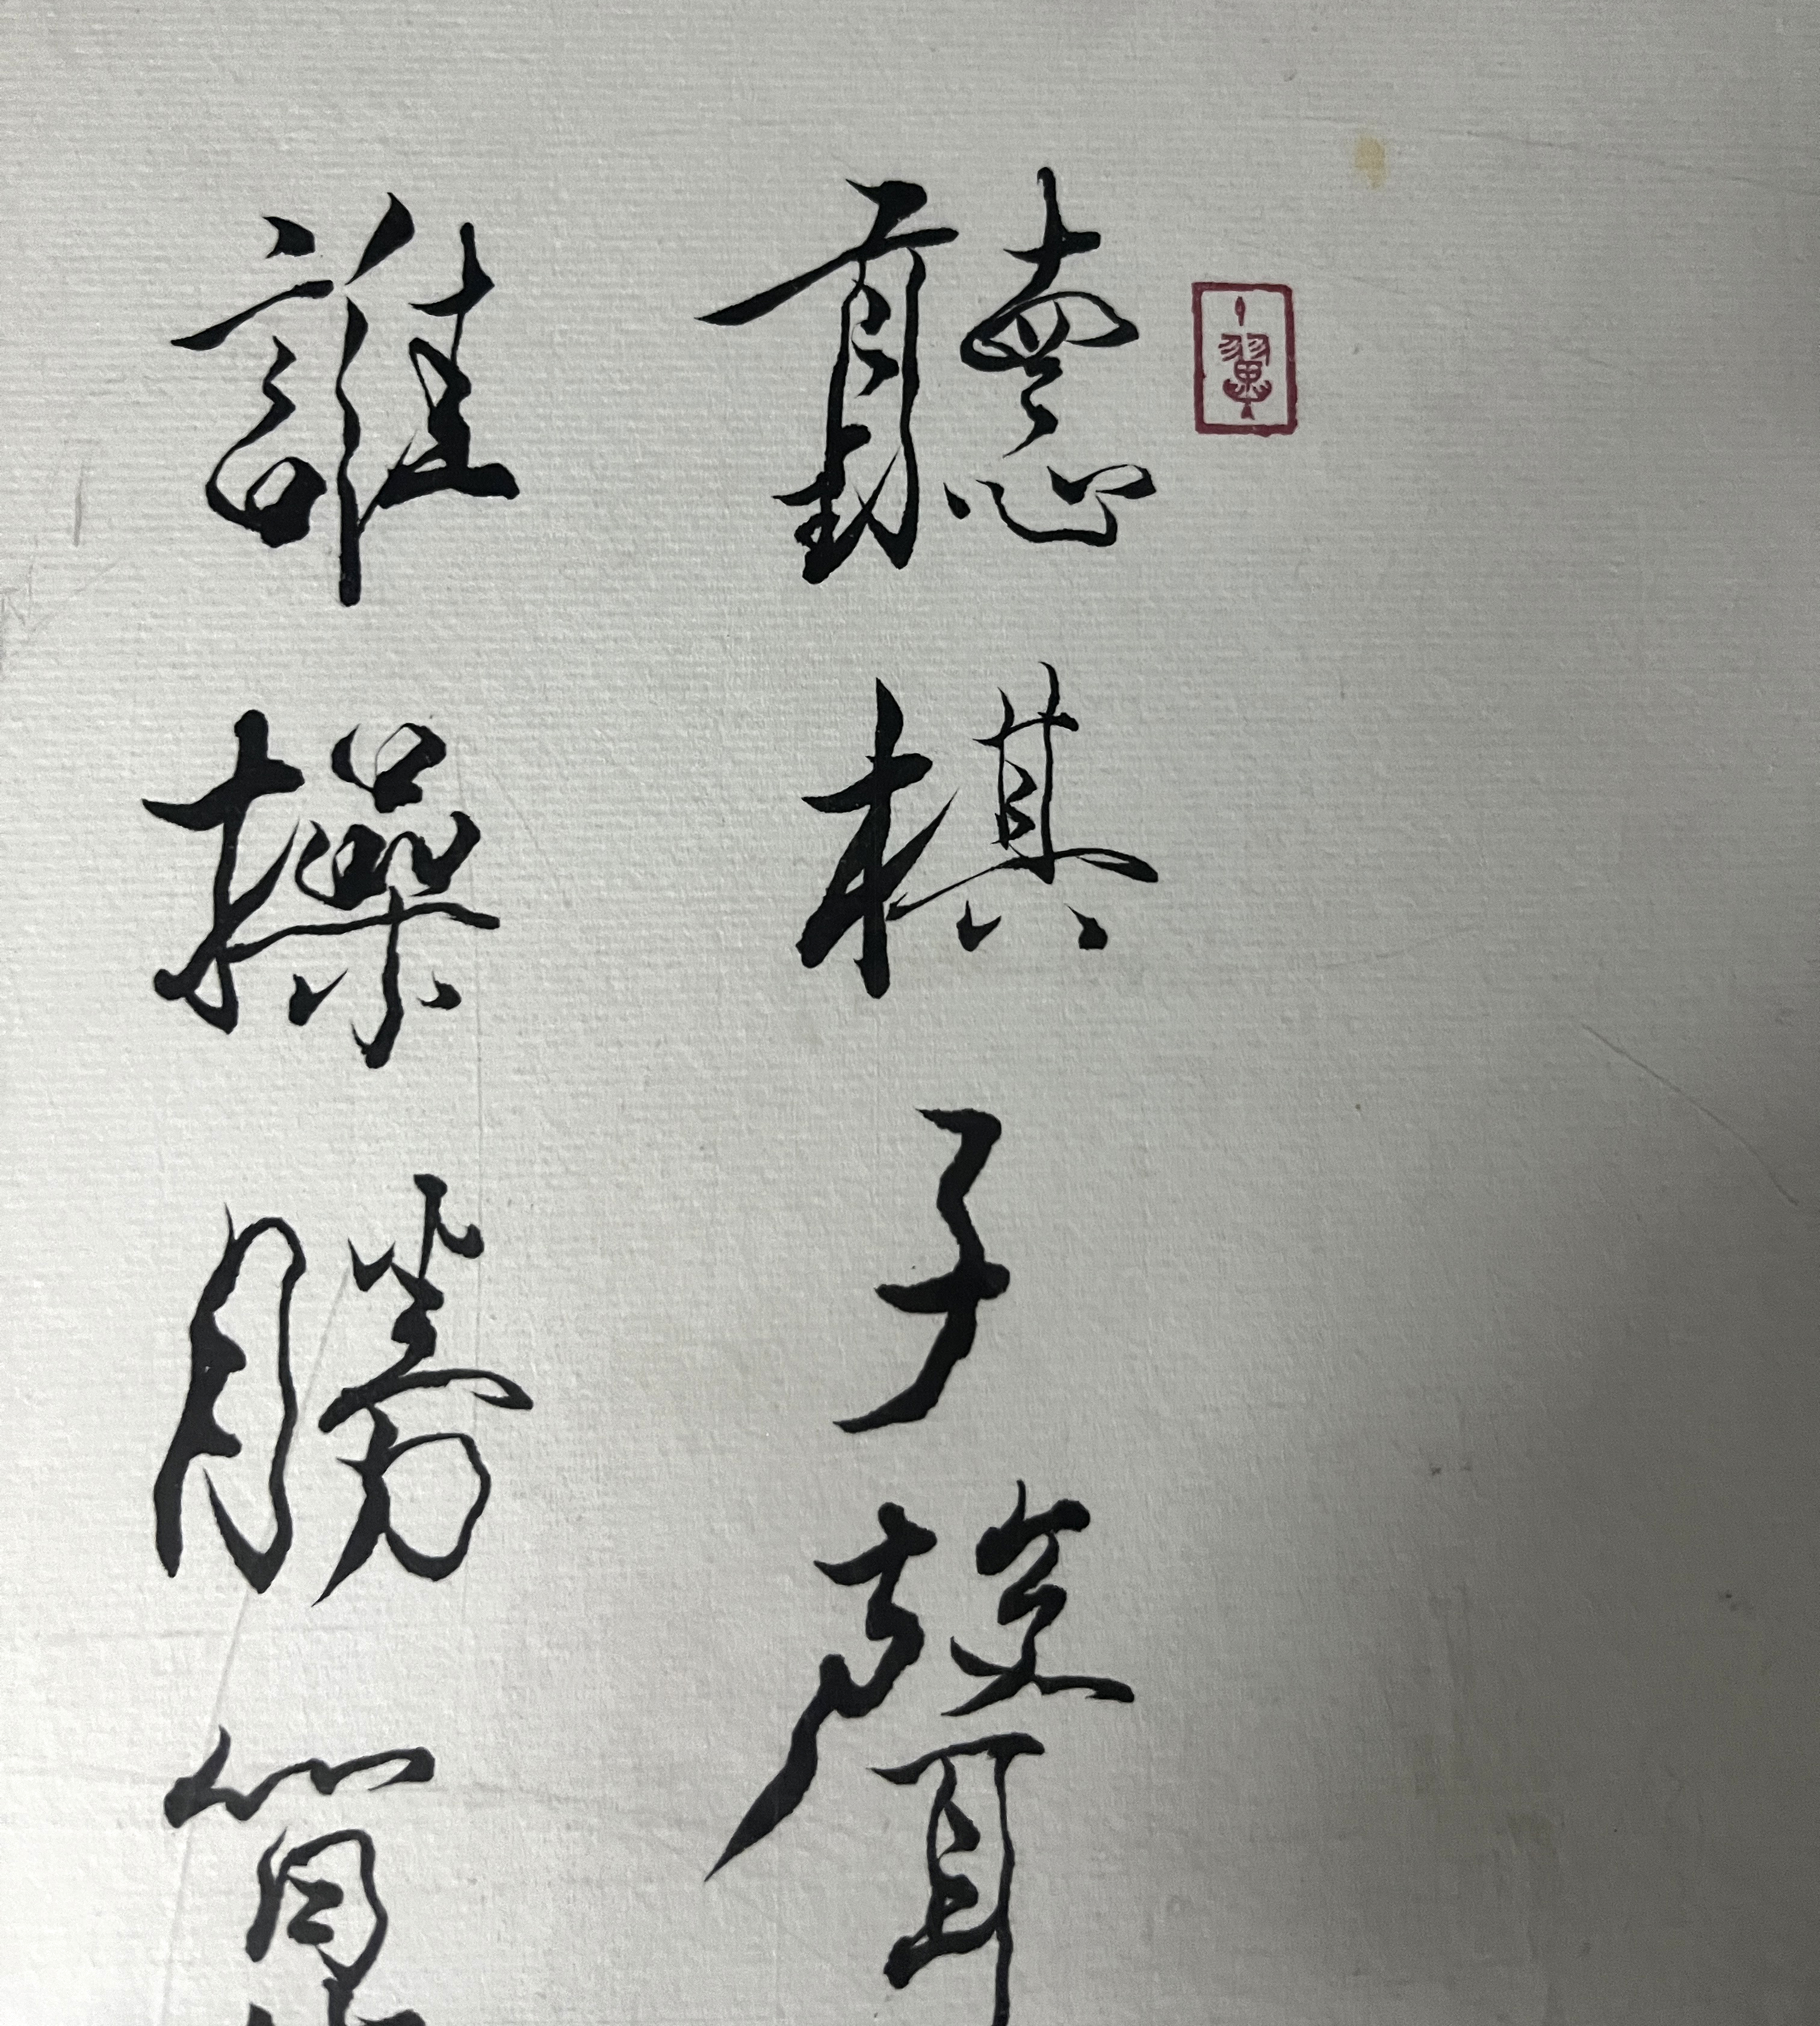 聽棋子聲
誰操勝算